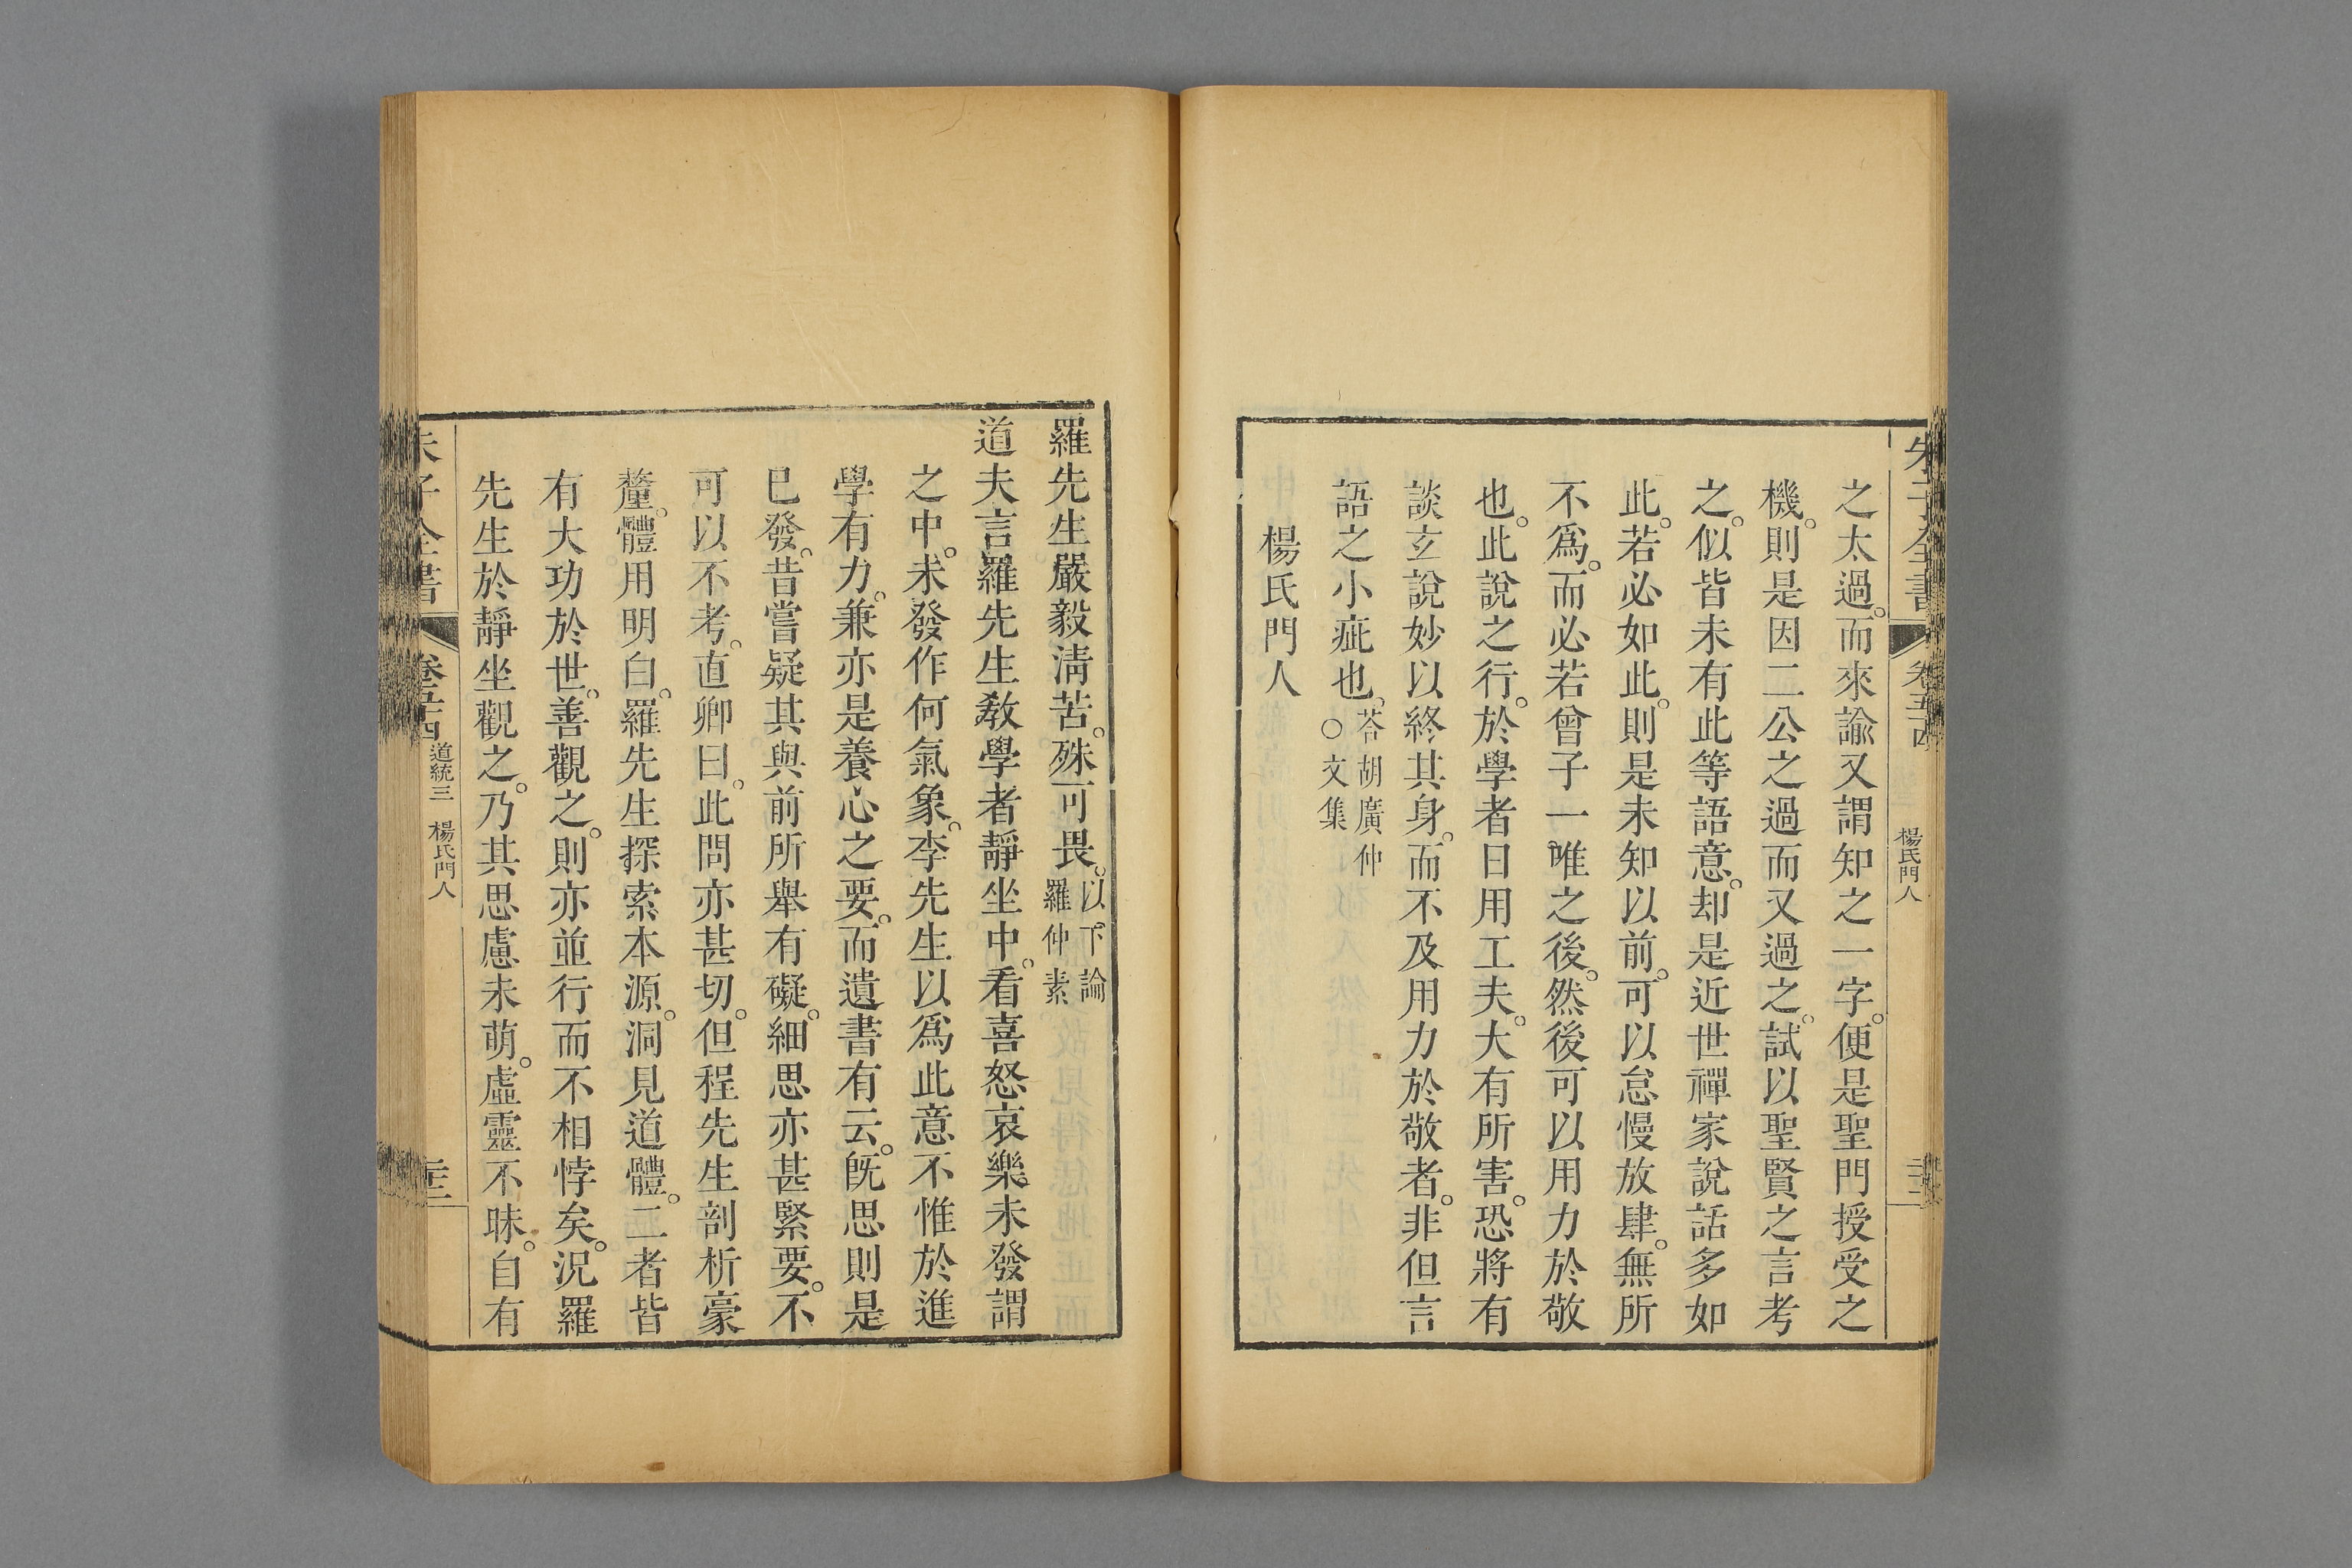 朱子全書 卷五十四 楊氏門人
之太過。而來諭又謂知之一字。便是聖門授受之
機。則是因二公之過而又過之。試以聖賢之言考
之。似皆未有此等語意。却是近世禪家說話多如
此。若必如此。則是未知以前。可以怠慢放肆。無所
不爲。而必若曾子一唯之後。然後可以用力於敬
也。此說之行。於學者日用工夫。大有所害。恐將有
談玄說妙以終其身。而不及用力於敬者。非但言
語之小疵也。荅胡廣仲○文集
楊氏門人
羅先生嚴毅淸苦。殊可畏。以下論羅仲素
道夫言羅先生敎學者靜坐中。看喜怒哀樂未發謂
之中。未發作何氣象。李先生以爲此意不惟於進
學有力。兼亦是養心之要。而遺書有云。旣思則是
已發。昔嘗疑其與前所舉有礙。細思亦甚緊要。不
可以不考。直卿曰。此問亦甚切。但程先生剖析豪
釐。體用明白。羅先生探索本源。洞見道體。二者皆
有大功於世。善觀之。則亦並行而不相悖矣。況羅
先生於靜坐觀之。乃其思慮未萌。虛靈不昧。自有
朱子全書 卷五十四 道統三 楊氏門人